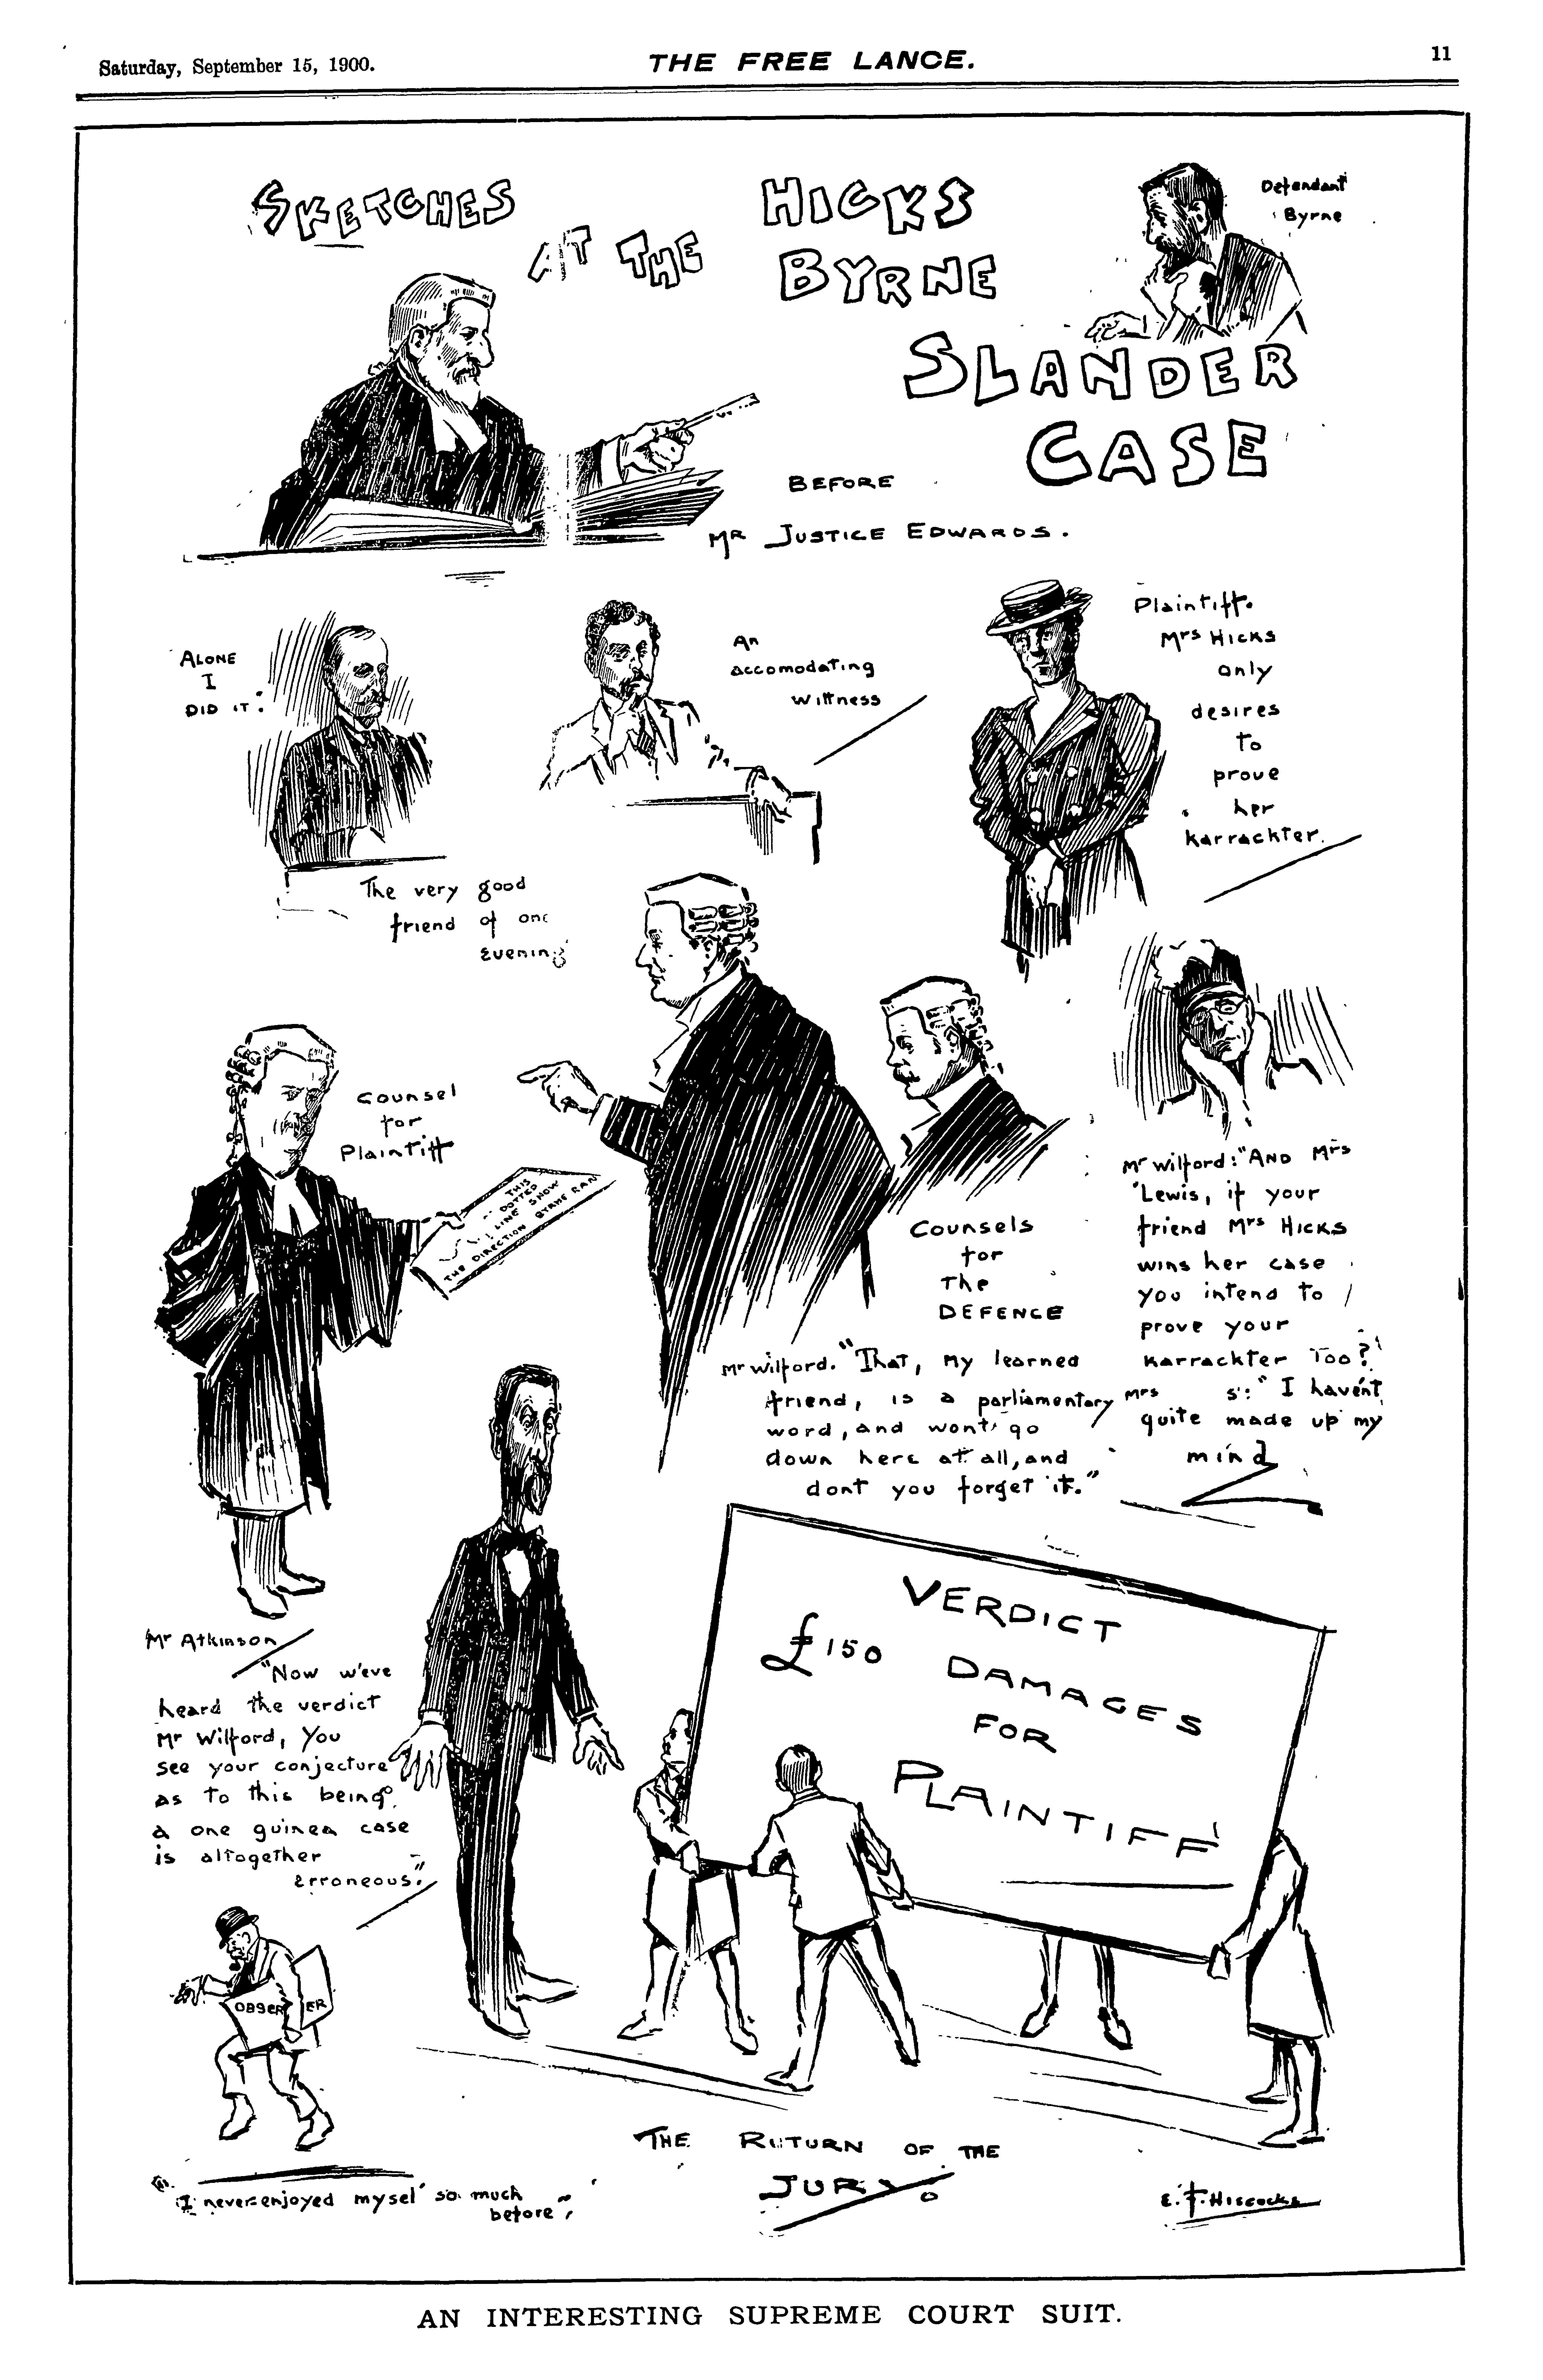 Saturday, September 15, 1900.
THE FREE LANCE.
11
SKETCHES
AT THE
HICKS
BYRNE
SLANDER
CASE
Defendant
Byrne
BEFORE
MR JUSTICE EDWARDS.
ALONE
I
DID IT.
The very good
friend of one
evening
An
accomodating
wittness
Plaintiff.
Mrs HICKS
only
desires
to
prove
her
karrackter.
Counsel
for
Plaintiff
THIS
DOTTED
LINE SHOW
THE DIRECTION BYRNE RAN
Counsels
for
The
DEFENCE
Mr Wilford. "That, my learned
friend, is a parliamentary
word, and wont go
down here at all, and
dont you forget it."
Mr Wilford: "AND Mrs
Lewis, if your
friend Mrs HICKS
wins her case
you intend to
prove your
karrackter too?"
Mrs S: "I havent
quite made up my
mind
Mr Atkinson
"Now w'eve
heard the verdict
Mr Wilford, you
see your conjecture
as to this being
a one guinea case
is altogether
erroneous."
OBSER ER
"I never enjoyed mysel' so much
before"
VERDICT
£150 DAMAGES
FOR
PLAINTIFF
THE RETURN OF THE
JURY.
E. F. Hiscocks
AN INTERESTING SUPREME COURT SUIT.